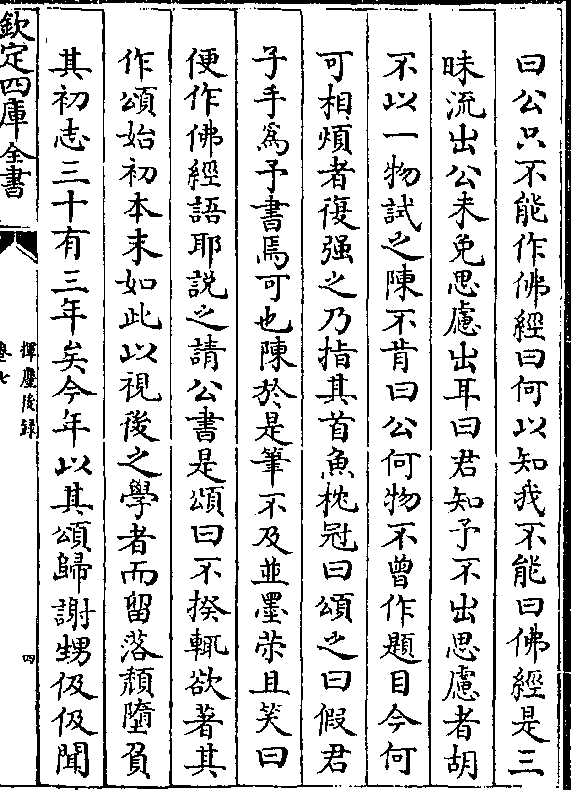 曰公只不能作佛經曰何以知我不能曰佛經是三
昧流出公未免思慮出耳曰君知予不出思慮者胡
不以一物試之陳不肯曰公何物不曾作題目今何
可相煩者復强之乃指其首魚枕冠曰頌之曰假君
子手爲予書焉可也陳於是筆不及並墨崇且笑曰
便作佛經語耶説之請公書是頌曰不揆輒欲著其
作頌始初本末如此以視後之學者而留落頹墮負
其初志三十有三年矣今年以其頌歸謝甥伋伋聞
欽定四庫全書
揮麈後録
卷七
四